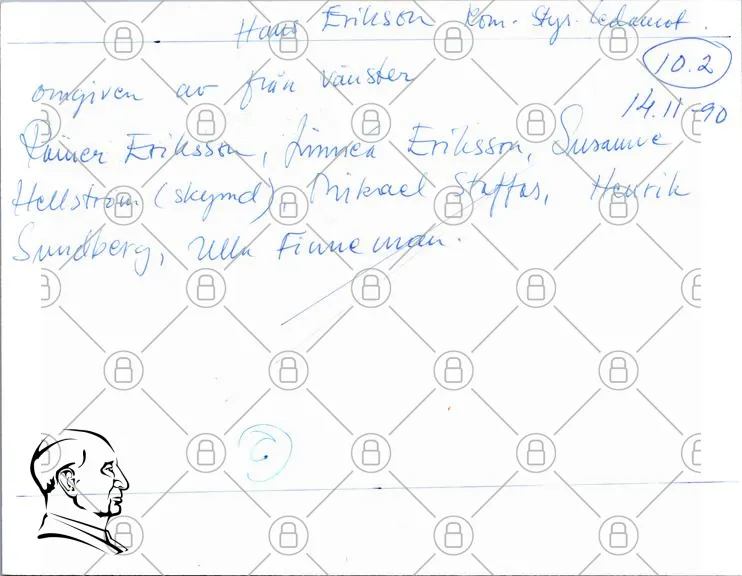 Hans Erikson Kom. Styr. ledamot.
10.2
omgiven av från vänster
14.11-90
Rainer Eriksson, Linnea Eriksson, Susanne
Hellström (skymd), Mikael Staffas, Henrik
Sundberg, Ulla Finneman.